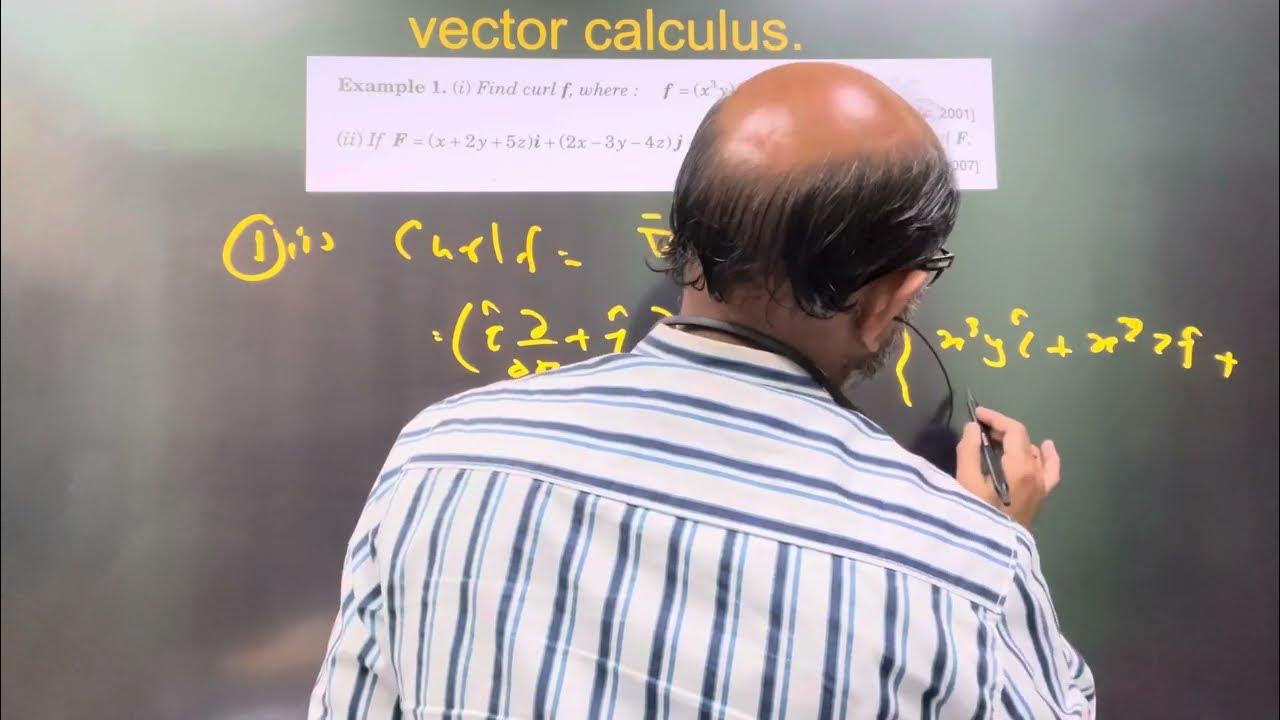 vector calculus.
Example 1. (i) Find curl f, where : f = (x³y)
2001]
(ii) If F = (x + 2y + 5z)i + (2x − 3y − 4z)j F.
007]
① (i) Curl f = ∇
= (î ∂/∂x + ĵ { x³y î + x² z ĵ +